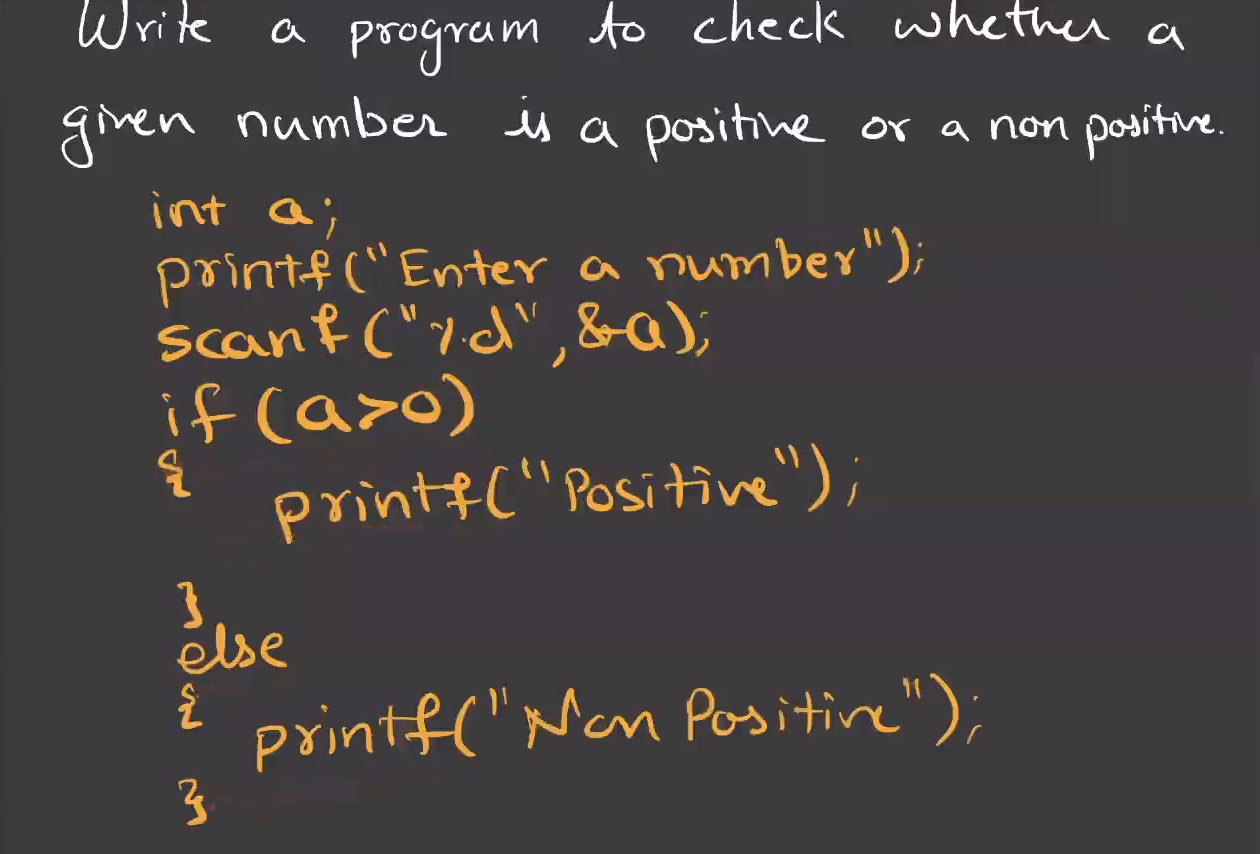 Write a program to check whether a
given number is a positive or a non positive.
int a;
printf("Enter a number");
scanf("%d",&a);
if(a>0)
{
printf("Positive");
}
else
{
printf("Non Positive");
}